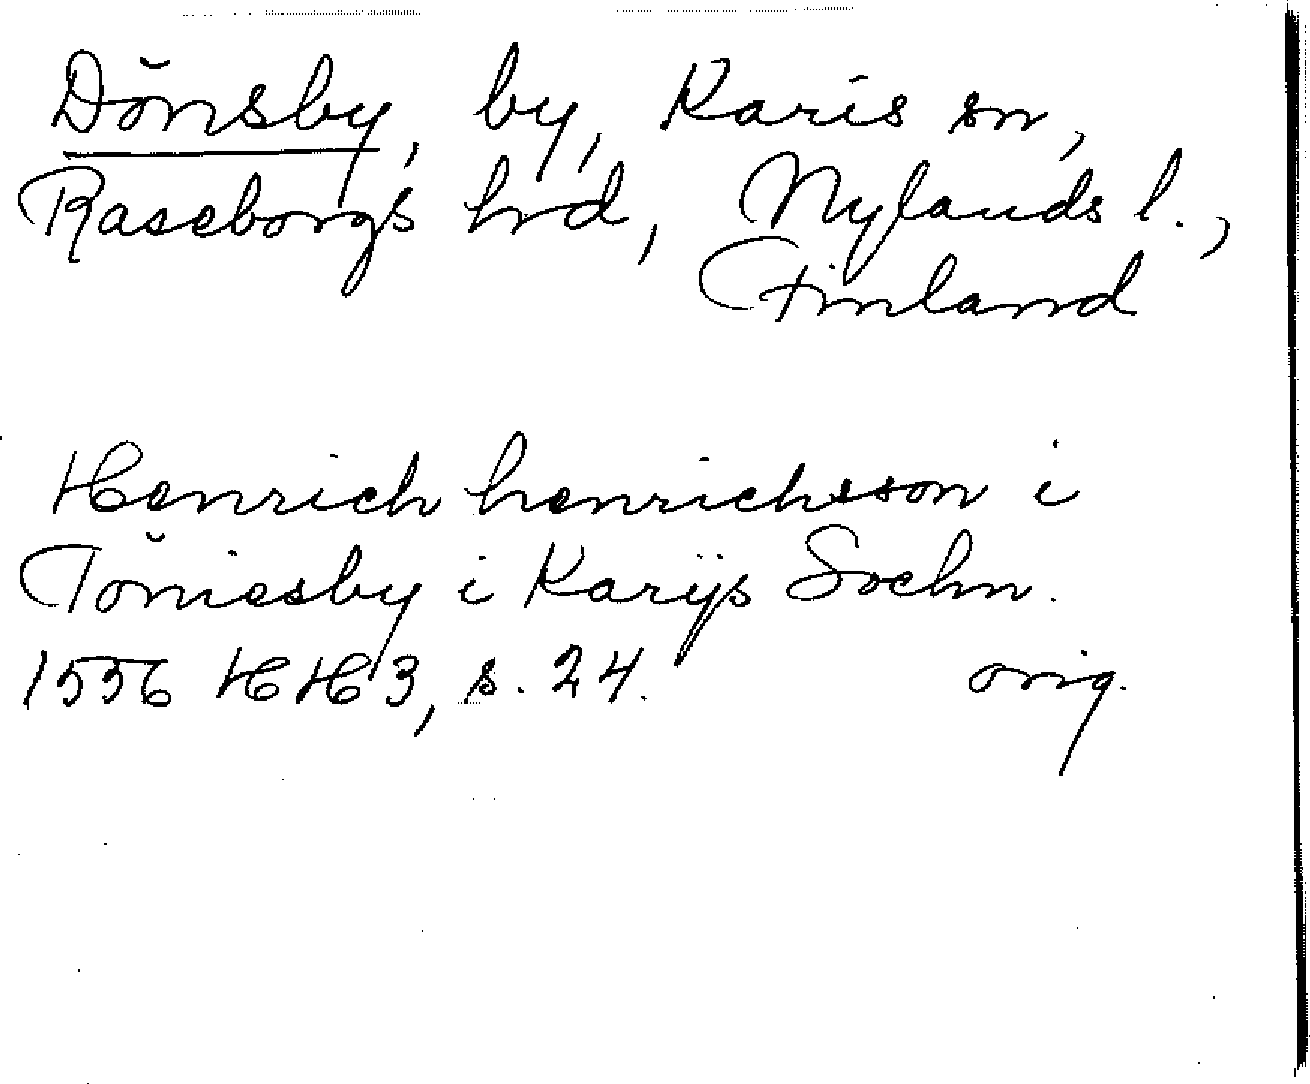 Dönsby, by, Karis sn,
Raseborgs hrd, Nylands l.,
Finland
Henrich henrichsson i
Töniesby i Karÿs Sochn.
1556 HH 3, s. 24. orig.